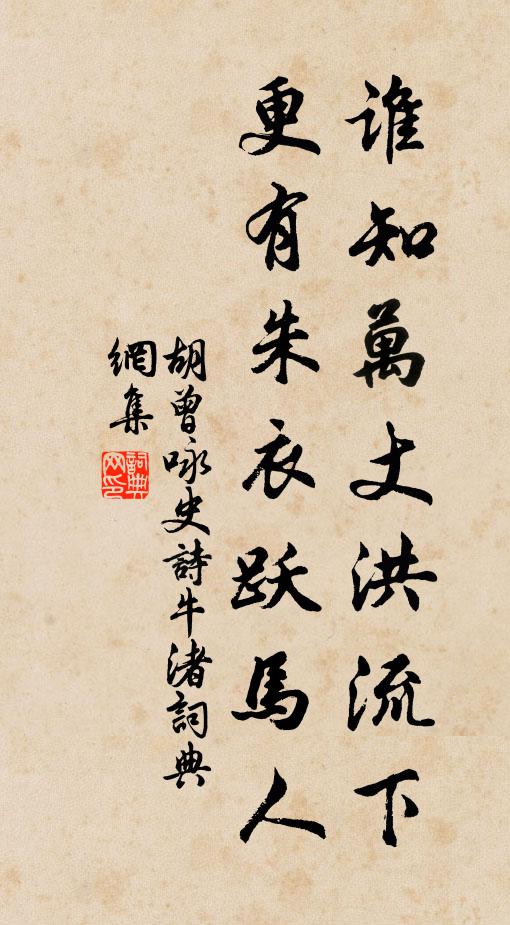 谁知萬丈洪流下
更有朱衣跃馬人
胡曾咏史詩牛渚詞典
網集
詞典
网印